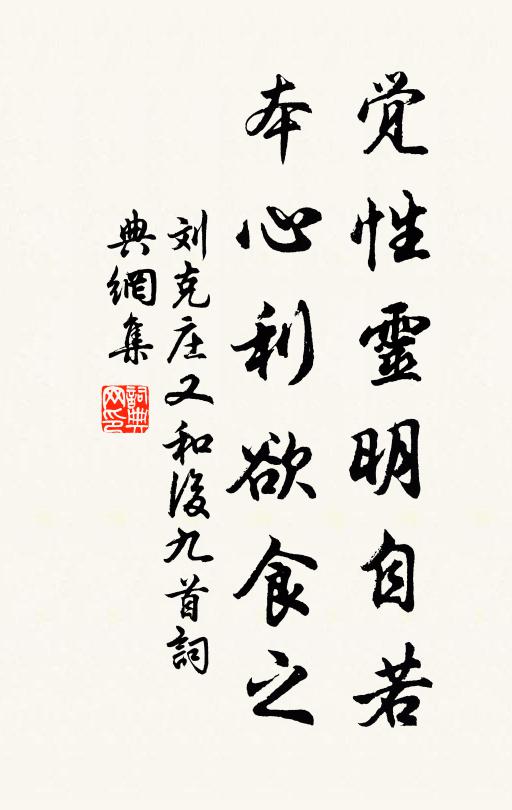 觉性靈明自若
本心利欲食之
刘克庄又和後九首詞
典網集
詞典网印